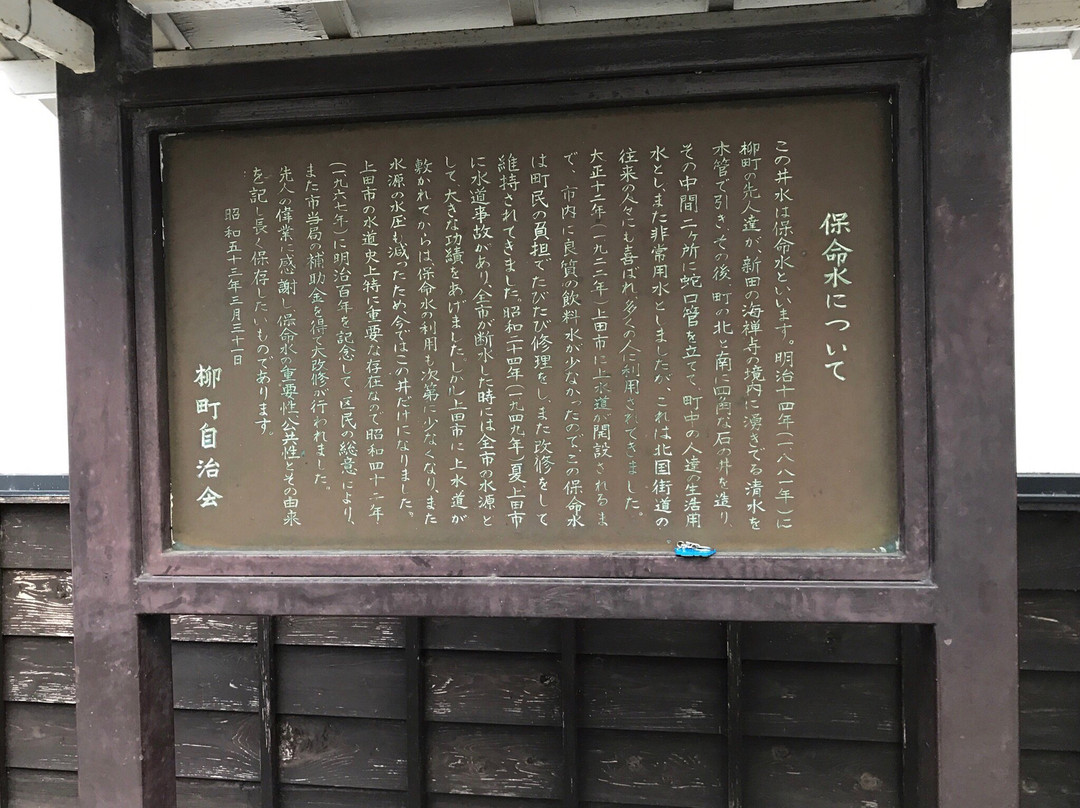 保命水について
この井水は保命水といいます。明治十四年(一八八一年)に
柳町の先人達が、新田の海禅寺の境内に湧きでる清水を
木管で引き、その後、町の北と南に四角な石の井を造り、
その中間二ヶ所に蛇口管を立てて、町中の人達の生活用
水とし、また非常用水としましたが、これは北国街道の
往来の人々にも喜ばれ、多くの人に利用されてきました。
大正十二年(一九二三年)上田市に上水道が開設されるま
で、市内に良質の飲料水が少なかったので、この保命水
は町民の負担でたびたび修理をし、また改修をして
維持されてきました。昭和二十四年(一九四九年)夏上田市
に水道事故があり、全市が断水した時には全市の水源と
して大きな功績をあげました。しかし上田市に上水道が
敷かれてからは、保命水の利用も次第に少なくなり、また
水源の水圧も減ったため、今ではこの井だけになりました。
上田市の水道史上特に重要な存在なので昭和四十二年
(一九六七年)に明治百年を記念して、区民の総意により、
また市当局の補助金を得て大改修が行われました。
先人の偉業に感謝し、保命水の重要性、公共性とその由来
を記し長く保存したいものであります。
昭和五十三年三月三十一日
柳町自治会